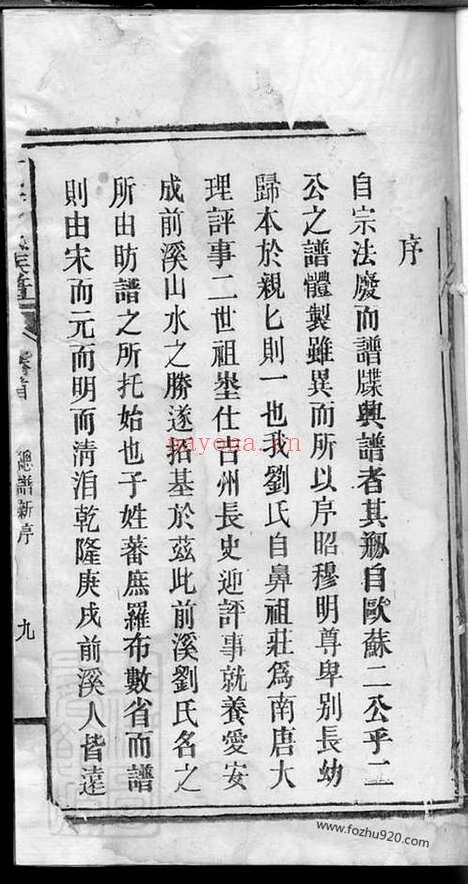 序
自宗法廢而譜牒興譜者其昉自歐蘇二公乎二
公之譜體製雖異而所以序昭穆明尊卑別長幼
歸本於親匕則一也我劉氏自鼻祖莊爲南唐大
理評事二世祖壆仕吉州長史迎評事就養愛安
成前溪山水之勝遂拓基於茲此前溪劉氏名之
所由昉譜之所托始也子姓蕃庶羅布數省而譜
則由宋而元而明而清洎乾隆庚戌前溪人皆遠
族譜
卷首
總譜新序
九
nayona.cn
www.fozhu920.com